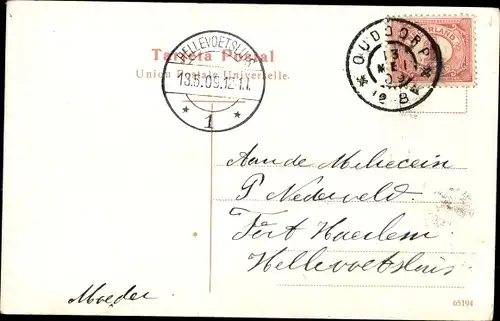 HELLEVOETSLUIS
13.5.09.12-1.
1
Tarjeta Postal
Union Postale Universelle.
OUDDORP
MEI
09
Aan de Milicein
P Nederveld.
Fort Haerlem
Hellevoetsluis
Moeder
65194